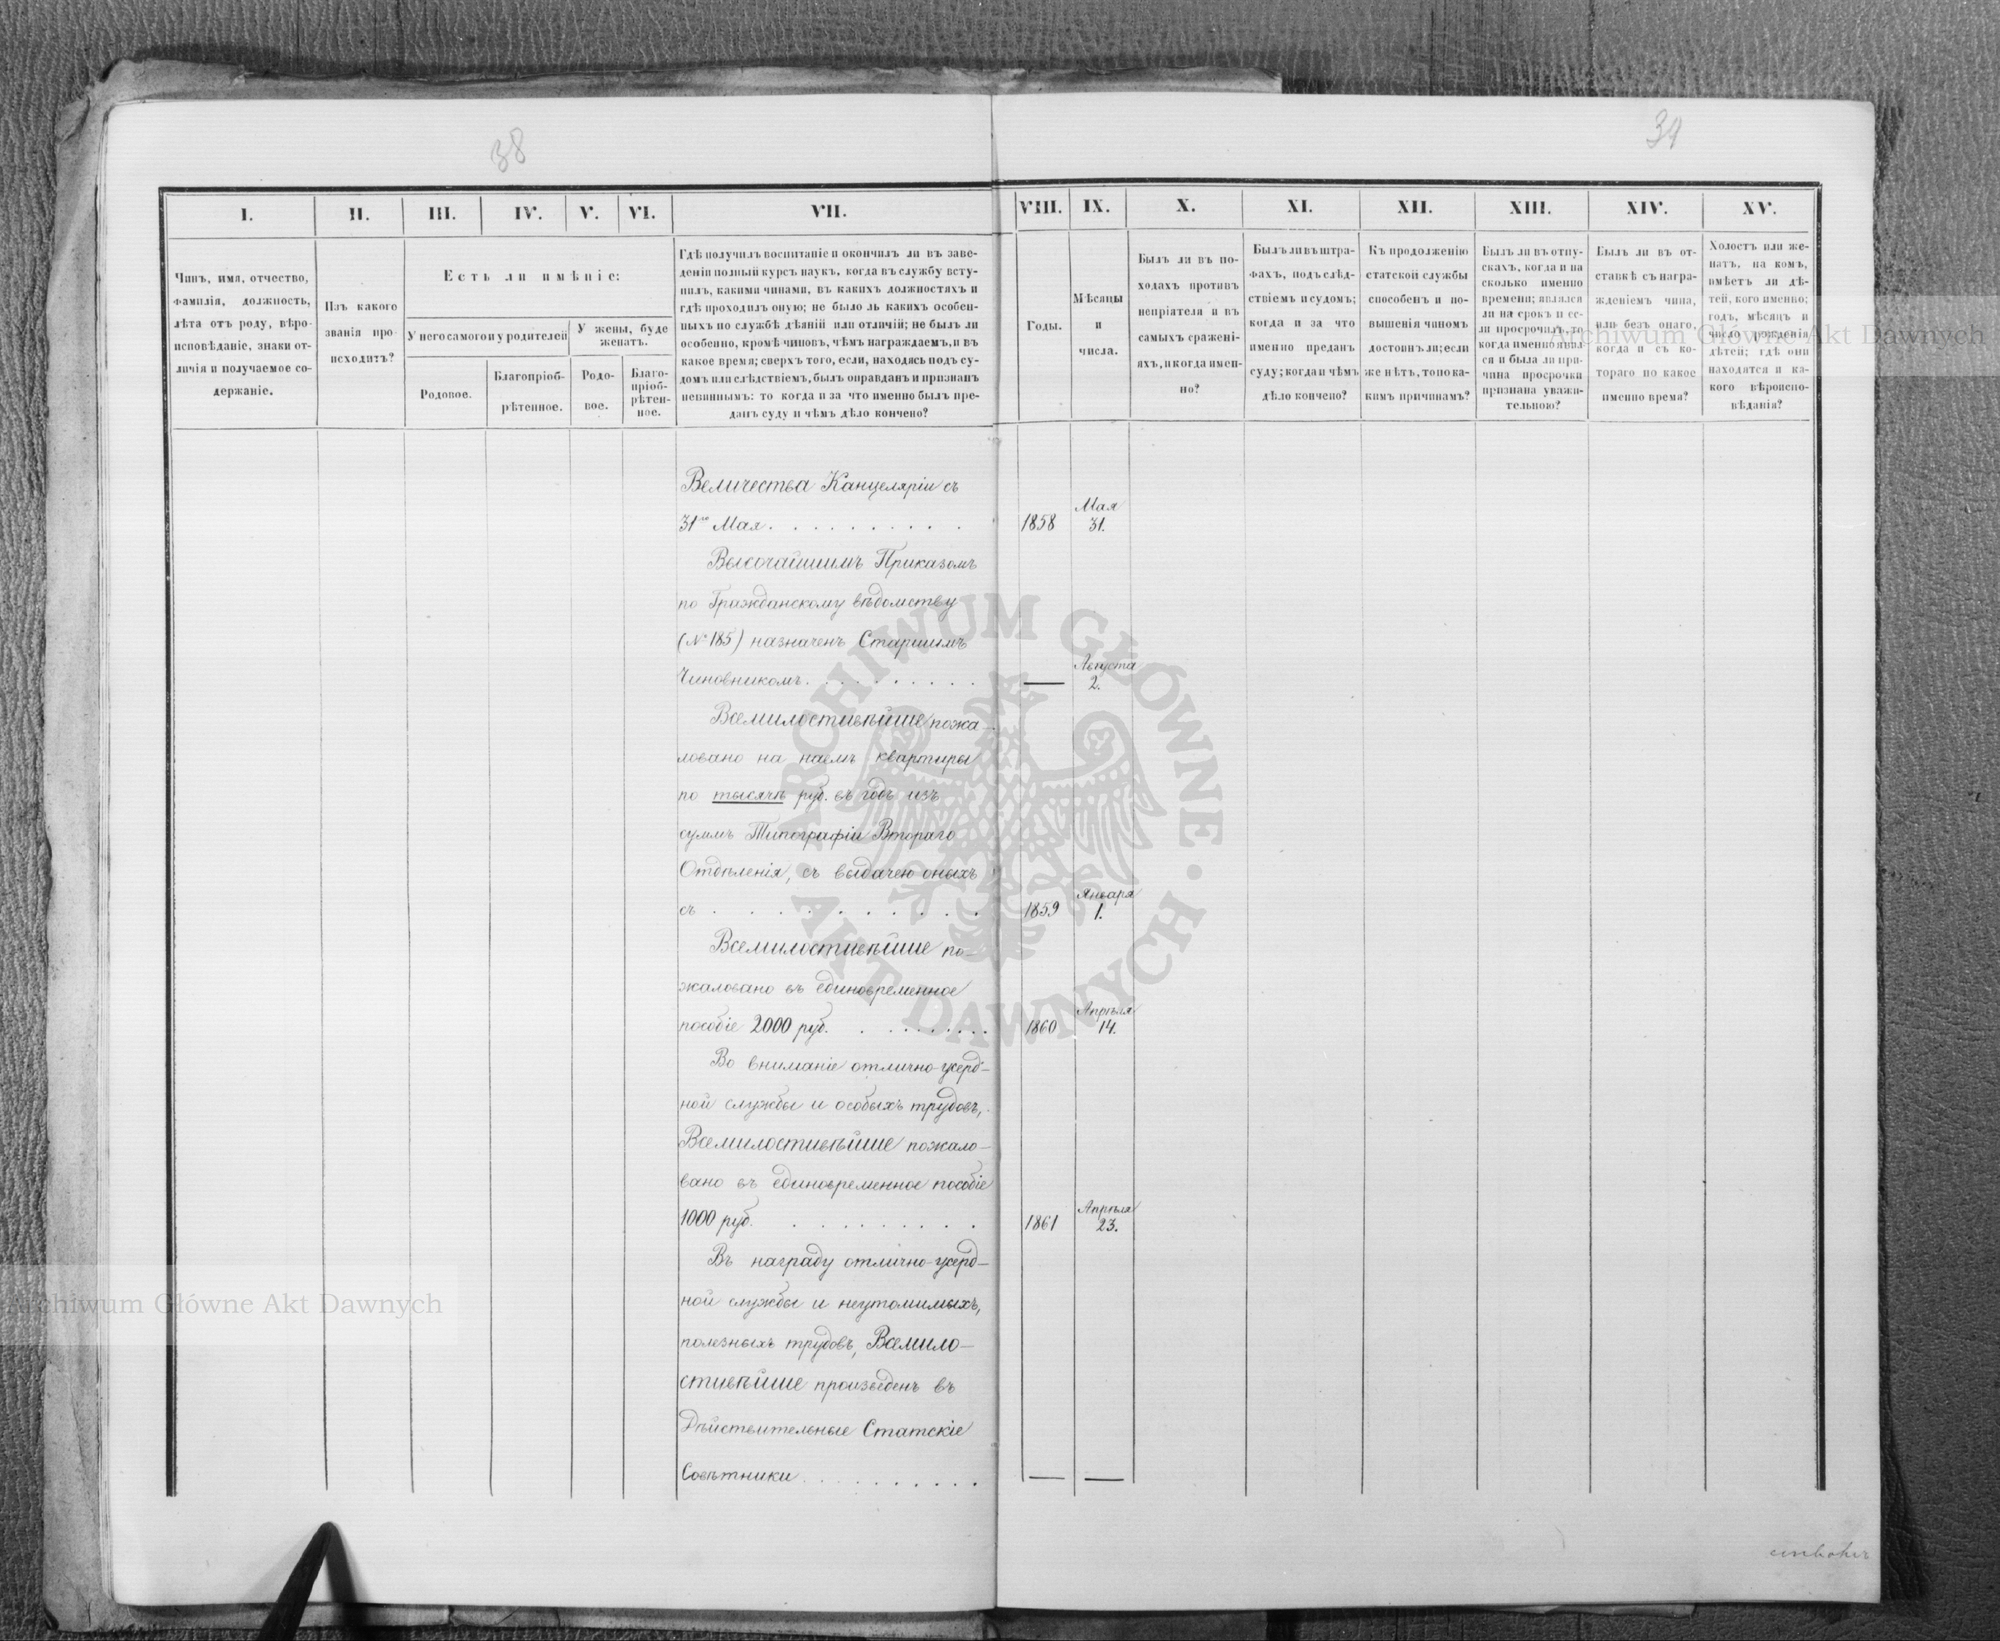 38
31
I.
II.
III.
IV.
V.
VI.
VII.
VIII.
IX.
X.
XI.
XII.
XIII.
XIV.
XV.
Чинъ, имя, отчество,
фамилія, должность,
лѣта отъ роду, вѣро-
исповѣданіе, знаки от-
личія и получаемое со-
держаніе.
Изъ какого
званія про-
исходитъ?
Есть ли имѣніе:
У него самого и у родителей
У жены, буде
женатъ.
Родовое.
Благопріоб-
рѣтенное.
Родо-
вое.
Благо-
пріоб-
рѣтен-
ное.
Гдѣ получилъ воспитаніе и окончилъ ли въ заве-
деніи полный курсъ наукъ, когда въ службу всту-
пилъ, какими чинами, въ какихъ должностяхъ и
гдѣ проходилъ оную; не было ль какихъ особен-
ныхъ по службѣ дѣяній или отличій; не былъ ли
особенно, кромѣ чиновъ, чѣмъ награждаемъ, и въ
какое время; сверхъ того, если, находясь подъ су-
домъ или слѣдствіемъ, былъ оправданъ и признанъ
невиннымъ: то когда и за что именно былъ пре-
данъ суду и чѣмъ дѣло кончено?
Годы.
Мѣсяцы
и
числа.
Былъ ли въ по-
ходахъ противъ
непріятеля и въ
самыхъ сражені-
яхъ, и когда имен-
но?
Былъ ли въ штра-
фахъ, подъ слѣд-
ствіемъ и судомъ;
когда и за что
именно преданъ
суду; когда и чѣмъ
дѣло кончено?
Къ продолженію
статской службы
способенъ и по-
вышенія чиномъ
достоинъ ли; если
же нѣтъ, то по ка-
кимъ причинамъ?
Былъ ли въ отпу-
скахъ, когда и на
сколько именно
времени; являлся
ли на срокъ и ес-
ли просрочилъ, то
когда именно явил-
ся и была ли при-
чина просрочки
признана уважи-
тельною?
Былъ ли въ от-
ставкѣ съ награ-
жденіемъ чина,
или безъ онаго,
когда и съ ко-
тораго по какое
именно время?
Холостъ или же-
натъ, на комъ,
имѣетъ ли дѣ-
тей, кого именно;
годъ, мѣсяцъ и
число рожденія
дѣтей; гдѣ они
находятся и ка-
кого вѣроиспо-
вѣданія?
Величества Канцеляріи съ
31го Мая . . . . . . . . . . 1858 Мая 31.
Высочайшимъ Приказомъ
по Гражданскому вѣдомству
(№ 185) назначенъ Старшимъ
Чиновникомъ . . . . . . . . . — Августа 2.
Всемилостивѣйше пожа-
ловано на наемъ квартиры
по тысячѣ руб. въ годъ изъ
суммъ Типографіи Втораго
Отдѣленія, съ выдачею оныхъ
съ . . . . . . . . . . . 1859 Января 1.
Всемилостивѣйше по-
жаловано въ единовременное
пособіе 2000 руб. . . . . . . . . 1860 Апрѣля 14.
Во вниманіе отлично-усерд-
ной службы и особыхъ трудовъ,
Всемилостивѣйше пожало-
вано въ единовременное пособіе
1000 руб. . . . . . . . . . 1861 Апрѣля 23.
Въ награду отлично-усерд-
ной службы и неутомимыхъ,
полезныхъ трудовъ, Всемило-
стивѣйше произведенъ въ
Дѣйствительные Статскіе
Совѣтники . . . . . . . . . . — —
Archiwum Główne Akt Dawnych
Archiwum Główne Akt Dawnych
ARCHIWUM GŁÓWNE · AKT DAWNYCH ·